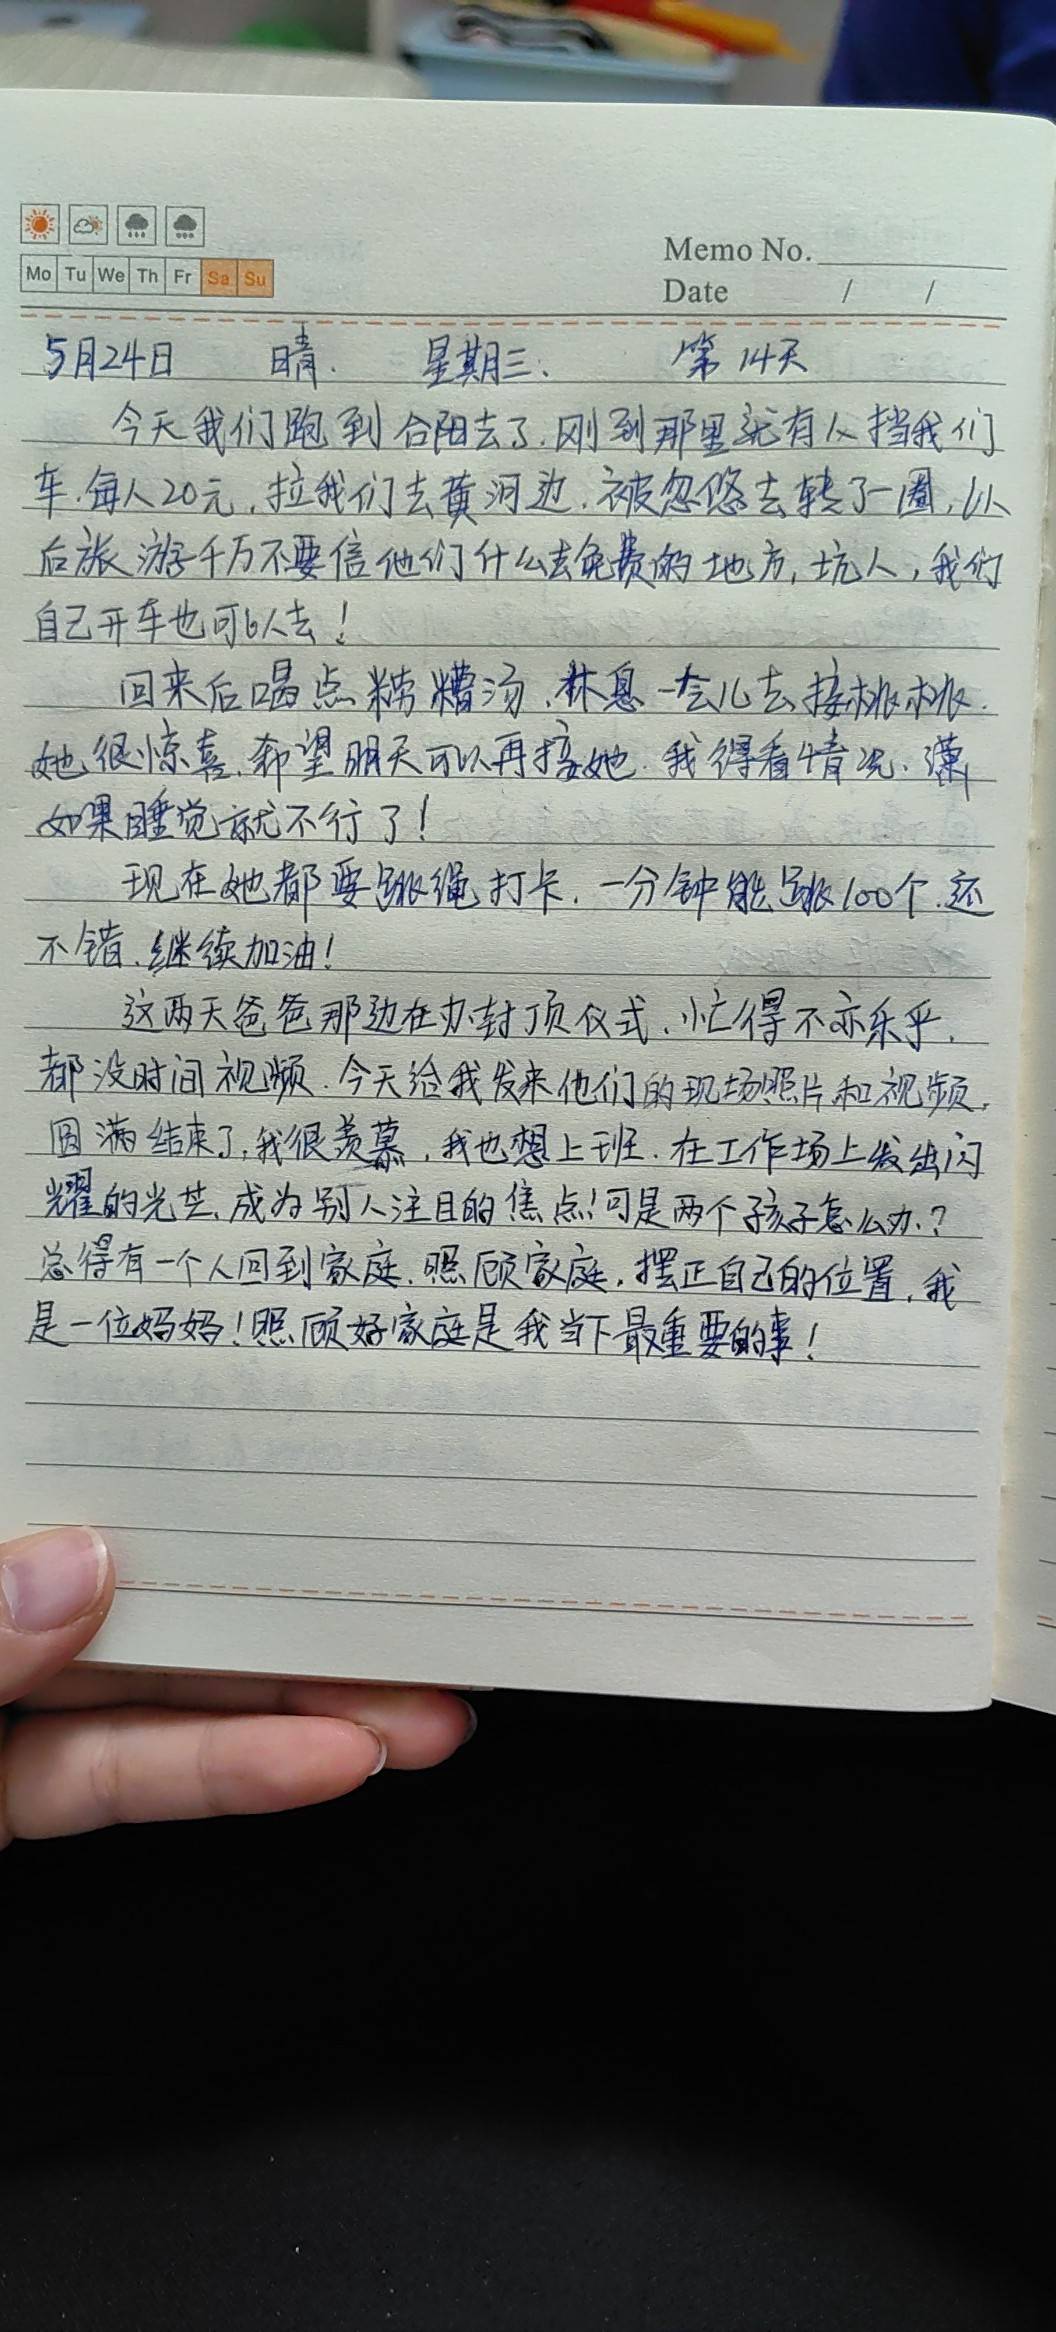 Memo No.
Mo Tu We Th Fr Sa Su
Date / /
5月24日 晴. 星期三. 第14天
今天我们跑到合阳去了.刚到那里就有人挡我们
车.每人20元,拉我们去黄河边.被忽悠去转了一圈,以
后旅游千万不要信他们什么去免费的地方,坑人,我们
自己开车也可以去!
回来后喝点醪糟汤.休息一会儿去接桃桃.
她很惊喜.希望明天可以再接她.我得看情况.潇
如果睡觉就不行了!
现在她都要跳绳打卡.一分钟能跳100个.还
不错.继续加油!
这两天爸爸那边在办封顶仪式.忙得不亦乐乎.
都没时间视频.今天给我发来他们的现场照片和视频.
圆满结束了,我很羡慕,我也想上班.在工作场上发出闪
耀的光芒.成为别人注目的焦点!可是两个孩子怎么办.?
总得有一个人回到家庭.照顾家庭.摆正自己的位置.我
是一位妈妈!照顾好家庭是我当下最重要的事!